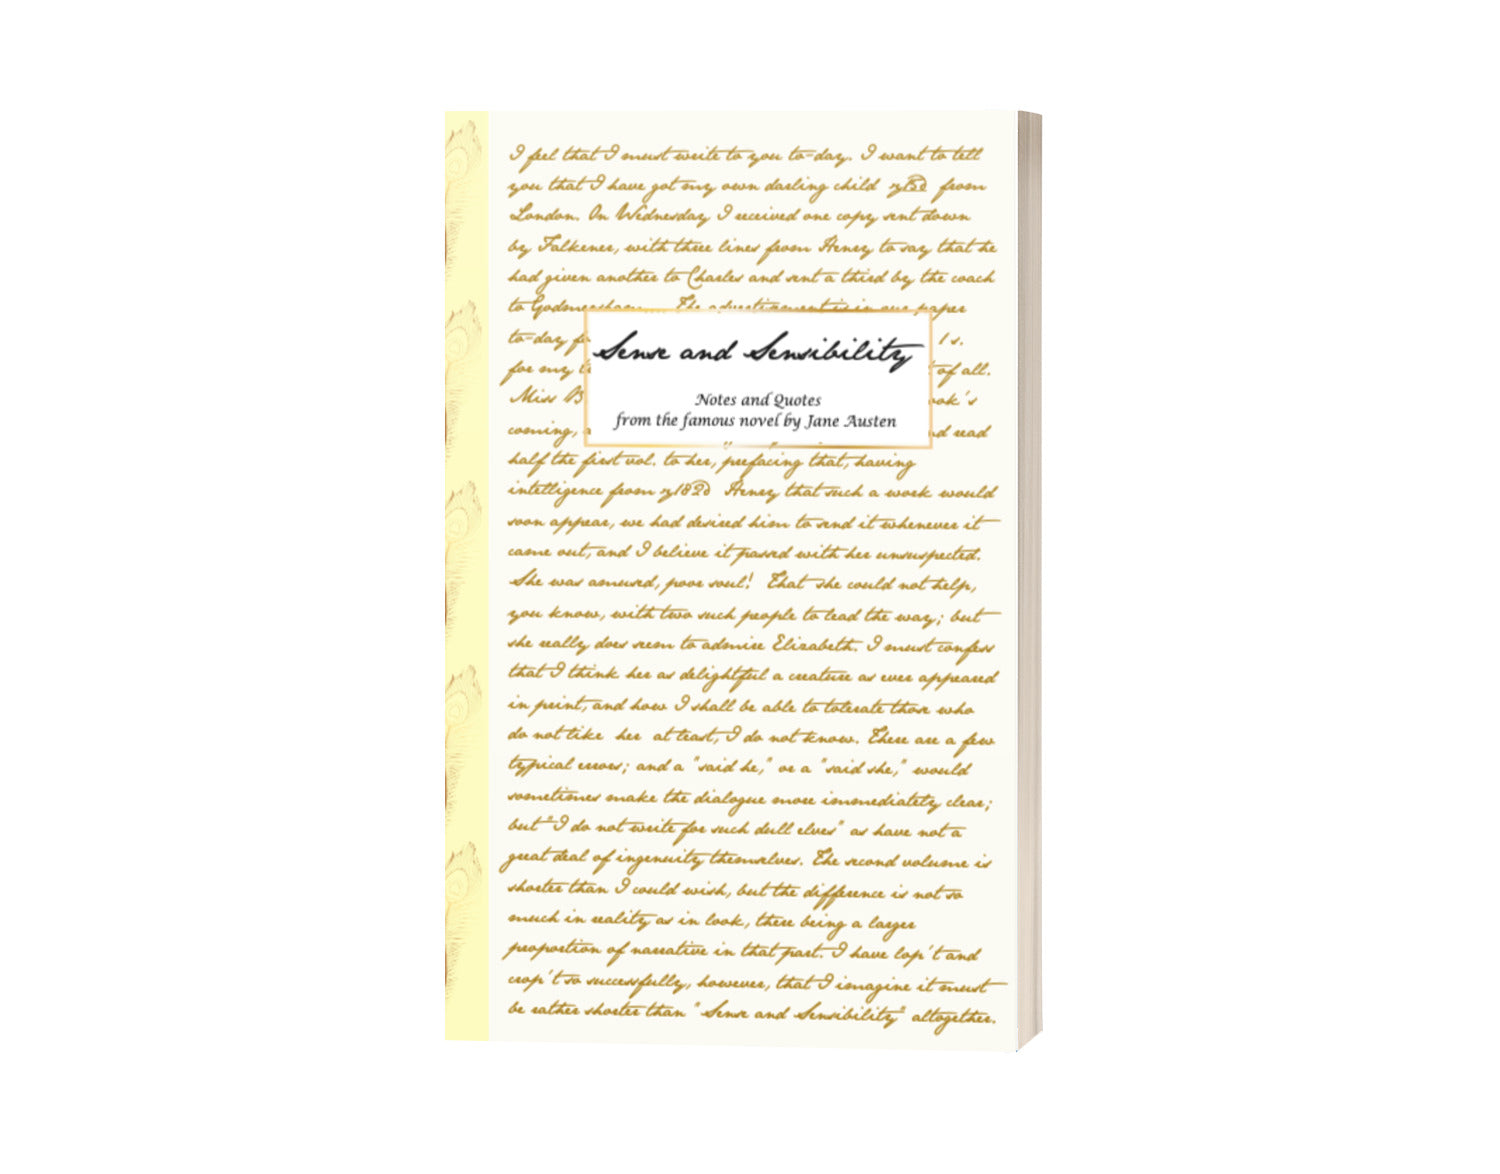 I feel that I must write to you to-day. I want to tell
you that I have got my own darling child from
London. On Wednesday I received one copy sent down
by Falkener, with three lines from Henry to say that he
had given another to Charles and sent a third by the coach
to Godmersham. The advertisement is in our paper
to-day 1s.
for my of all.
Miss B
Sense and Sensibility
Notes and Quotes
from the famous novel by Jane Austen
coming, read
half the first vol. to her, prefacing that, having
intelligence from Henry that such a work would
soon appear, we had desired him to send it whenever it
came out, and I believe it passed with her unsuspected.
She was amused, poor soul! That she could not help,
you know, with two such people to lead the way; but
she really does seem to admire Elizabeth. I must confess
that I think her as delightful a creature as ever appeared
in print, and how I shall be able to tolerate those who
do not like her at least, I do not know. There are a few
typical errors; and a "said he," or a "said she," would
sometimes make the dialogue more immediately clear;
but "I do not write for such dull elves" as have not a
great deal of ingenuity themselves. The second volume is
shorter than I could wish, but the difference is not so
much in reality as in look, there being a larger
proportion of narrative in that part. I have lop't and
crop't so successfully, however, that I imagine it must
be rather shorter than "Sense and Sensibility" altogether.